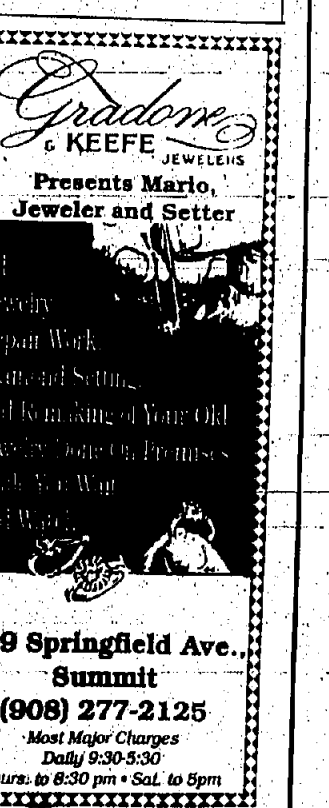 Gradone
& KEEFE
JEWELERS
Presents Mario,
Jeweler and Setter
ewelry
epair Work,
amond Setting,
d Remaking of Your Old
ewelry Done On Premises
You Wait
9 Springfield Ave.,
Summit
(908) 277-2125
Most Major Charges
Daily 9:30-5:30
urs. to 8:30 pm • Sat. to 5pm